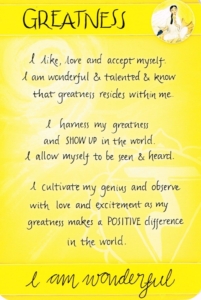 GREATNESS
I like, love and accept myself.
I am wonderful & talented & know
that greatness resides within me.
I harness my greatness
and SHOW UP in the world.
I allow myself to be seen & heard.
I cultivate my genius and observe
with love and excitement as my
greatness makes a POSITIVE difference
in the world.
I am wonderful